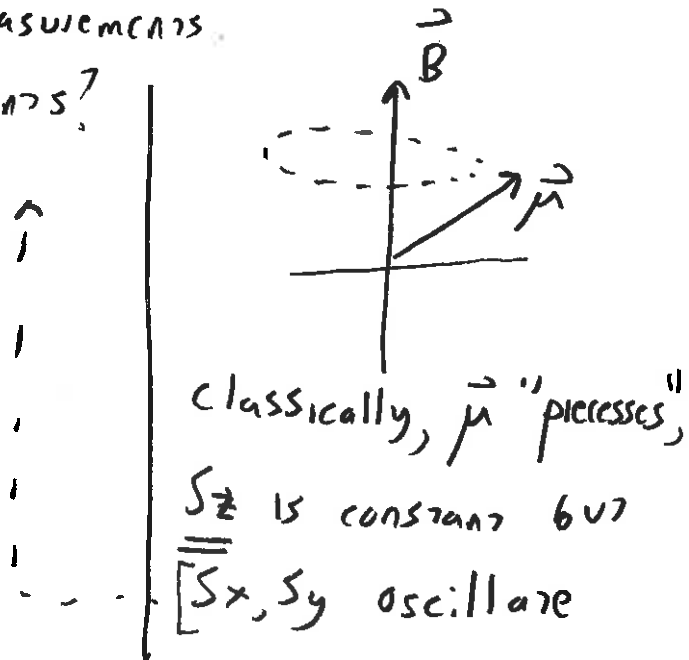 asurements
nts?
B
μ
classically, μ "precesses,"
Sz is constant but
[Sx, Sy oscillate